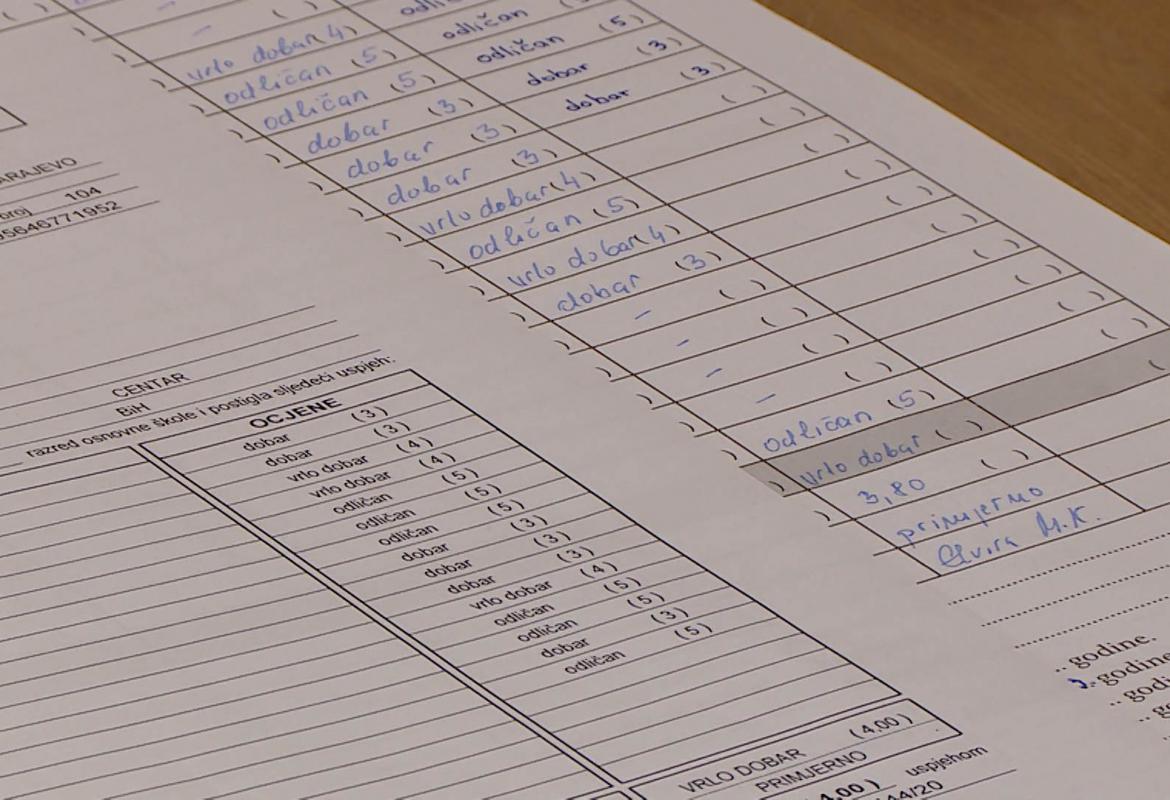 odličan
vrlo dobar (4) odličan (5)
odličan (5) dobar (3)
odličan (5) dobar (3)
dobar (3)
dobar (3)
dobar (3)
vrlo dobar (4)
odličan (5)
vrlo dobar (4)
dobar (3)
- ( )
- ( )
- ( )
- ( )
odličan (5)
vrlo dobar ( )
3,80 ( )
primjerno
Elvira M.K.
broj 104
CENTAR
BiH
razred osnovne škole i postigla sljedeći uspjeh:
OCJENE
dobar (3)
dobar (3)
vrlo dobar (4)
vrlo dobar (4)
odličan (5)
odličan (5)
odličan (5)
dobar (3)
dobar (3)
dobar (3)
vrlo dobar (4)
odličan (5)
odličan (5)
dobar (3)
odličan (5)
VRLO DOBAR (4,00)
PRIMJERNO
uspjehom
.. godine.
godine